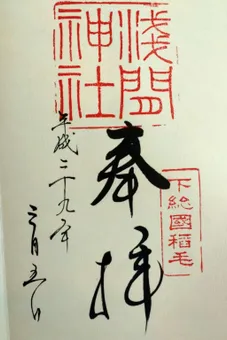 浅間
神社
奉拝
下総國稲毛
平成二十九年
三月五日